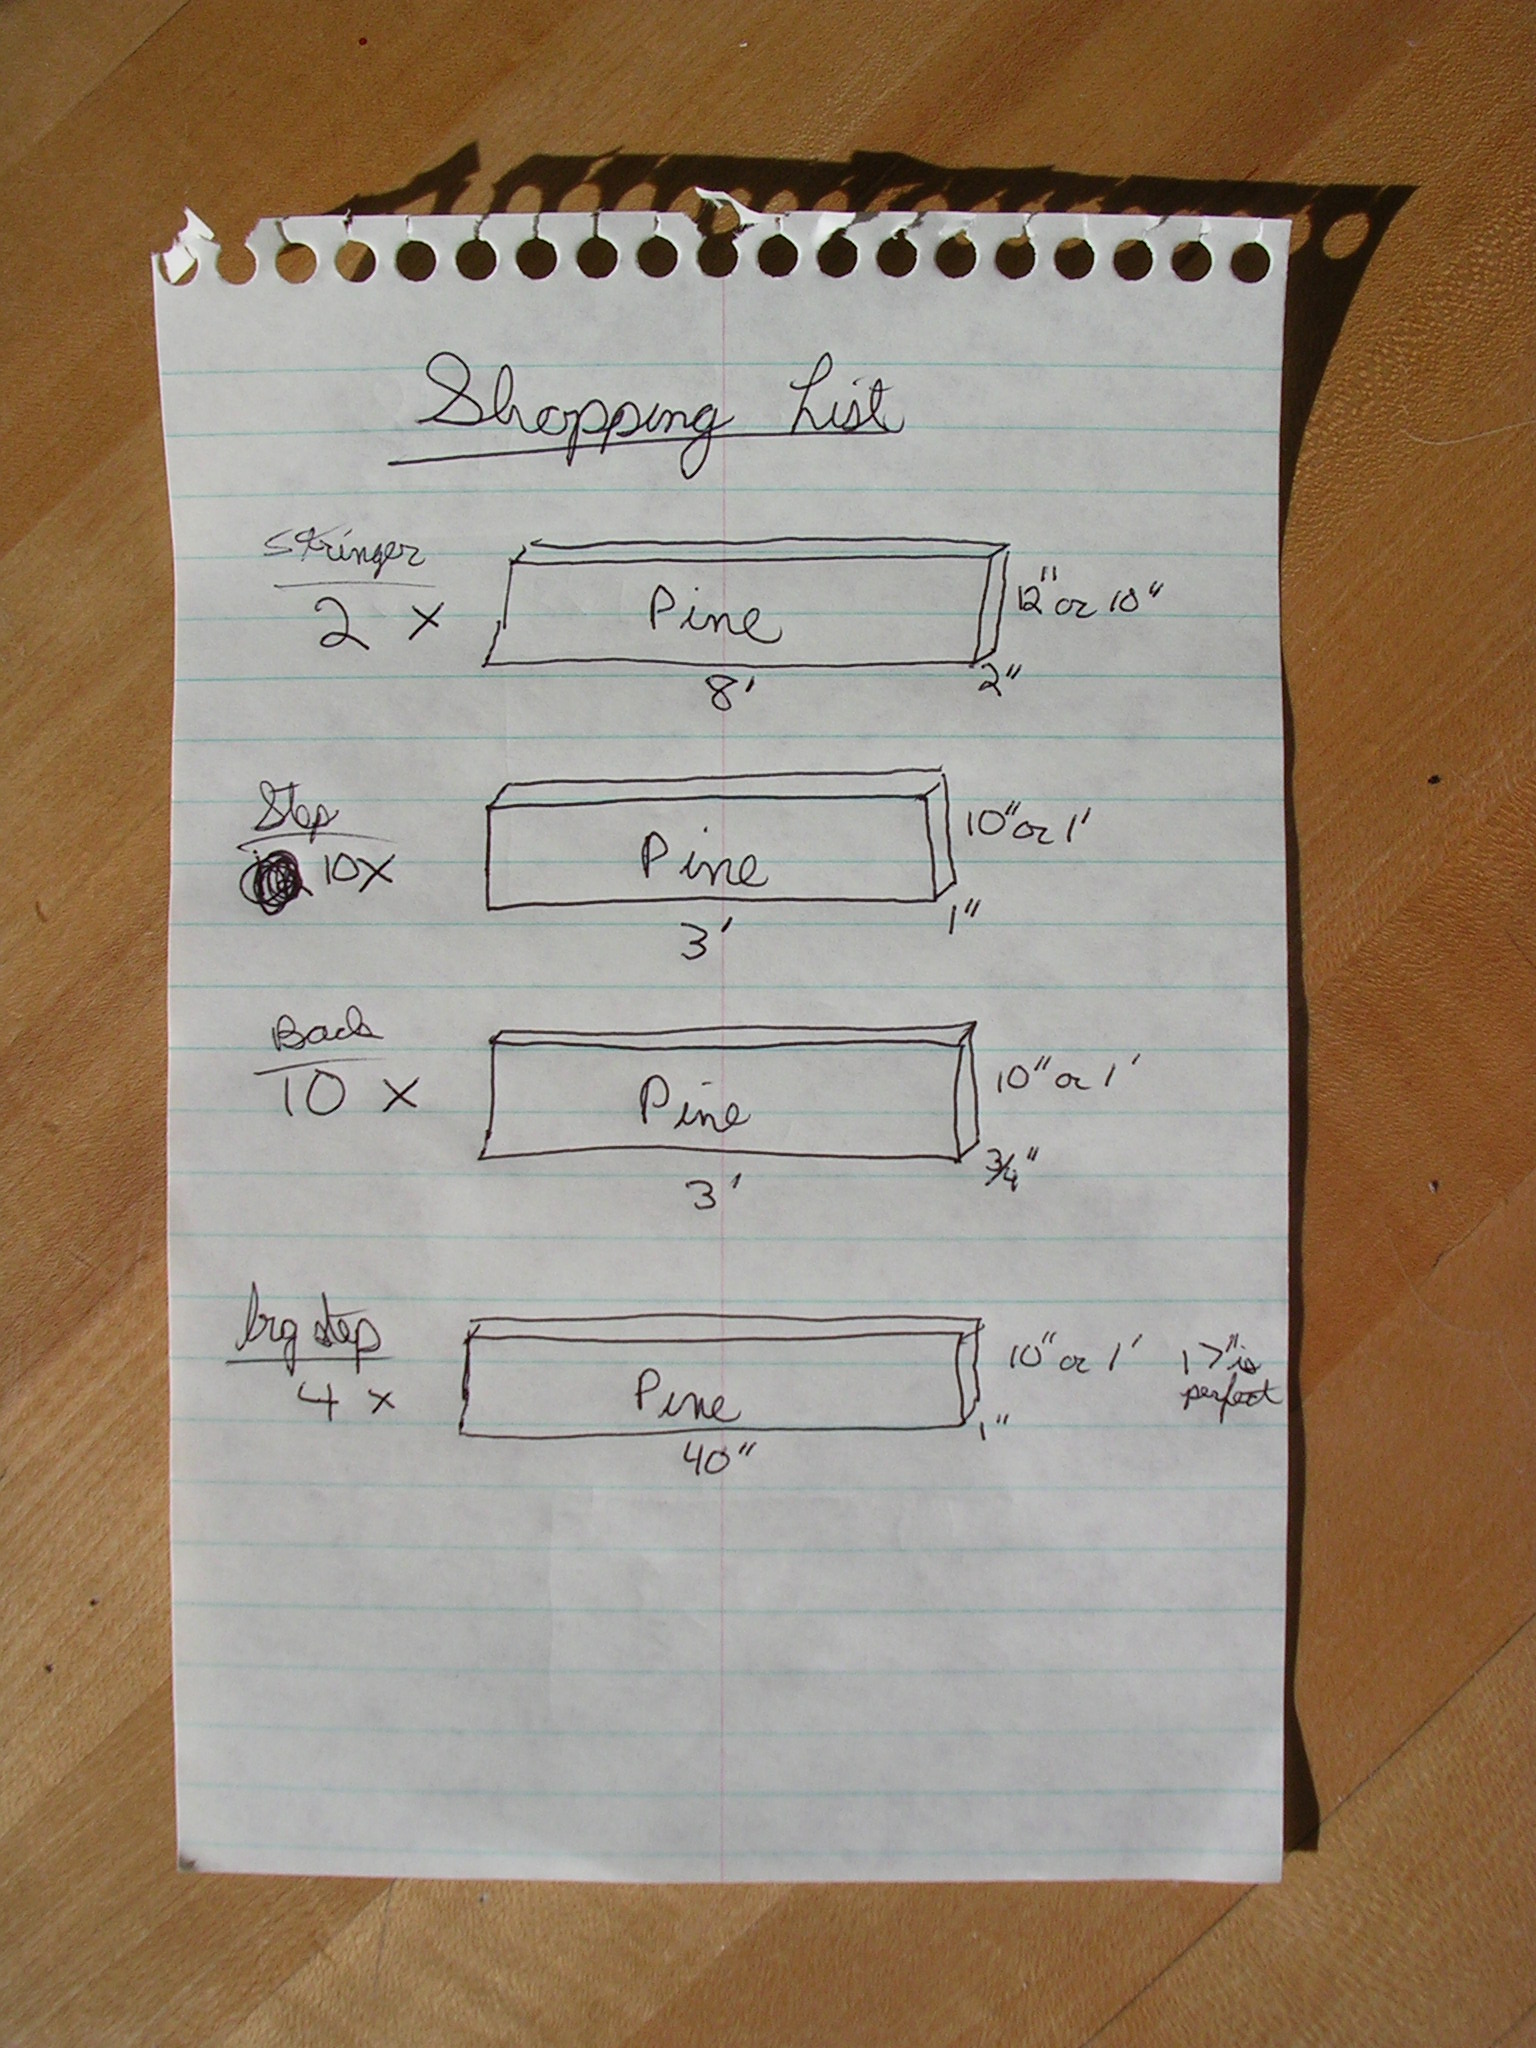 Shopping List
Stringer
2 x
Pine
12" or 10"
2"
8'
Step
10x
Pine
10" or 1'
1"
3'
Back
10 x
Pine
10" or 1'
3/4"
3'
big step
4 x
Pine
10" or 1'
is
perfect
1"
40"